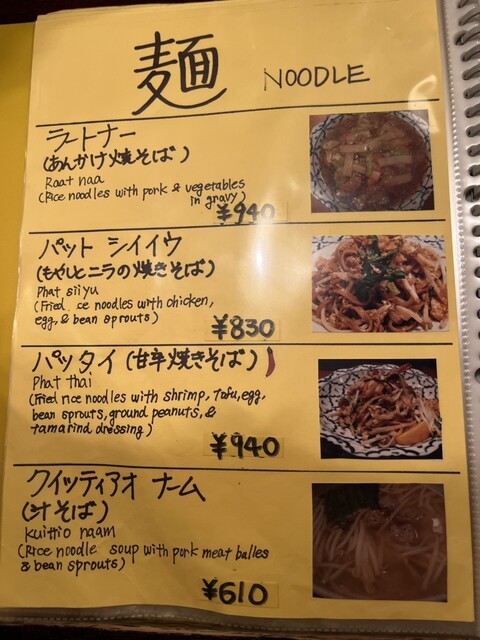 麺 NOODLE
ラートナー
(あんかけ焼そば)
Raat naa
(Rice noodles with pork & vegetables
in gravy)
¥940
パット シイイウ
(もやしとニラの焼きそば)
Phat siiyu
(Fried ce noodles with chicken,
egg, & bean sprouts)
¥830
パッタイ (甘辛焼きそば)
Phat thai
(Fried rice noodles with shrimp, Tofu, egg,
bean sprouts, ground peanuts, &
tamarind dressing)
¥940
クイッティアオ ナーム
(汁そば)
Kuittio naam
(Rice noodle soup with pork meat balles
& bean sprouts)
¥610